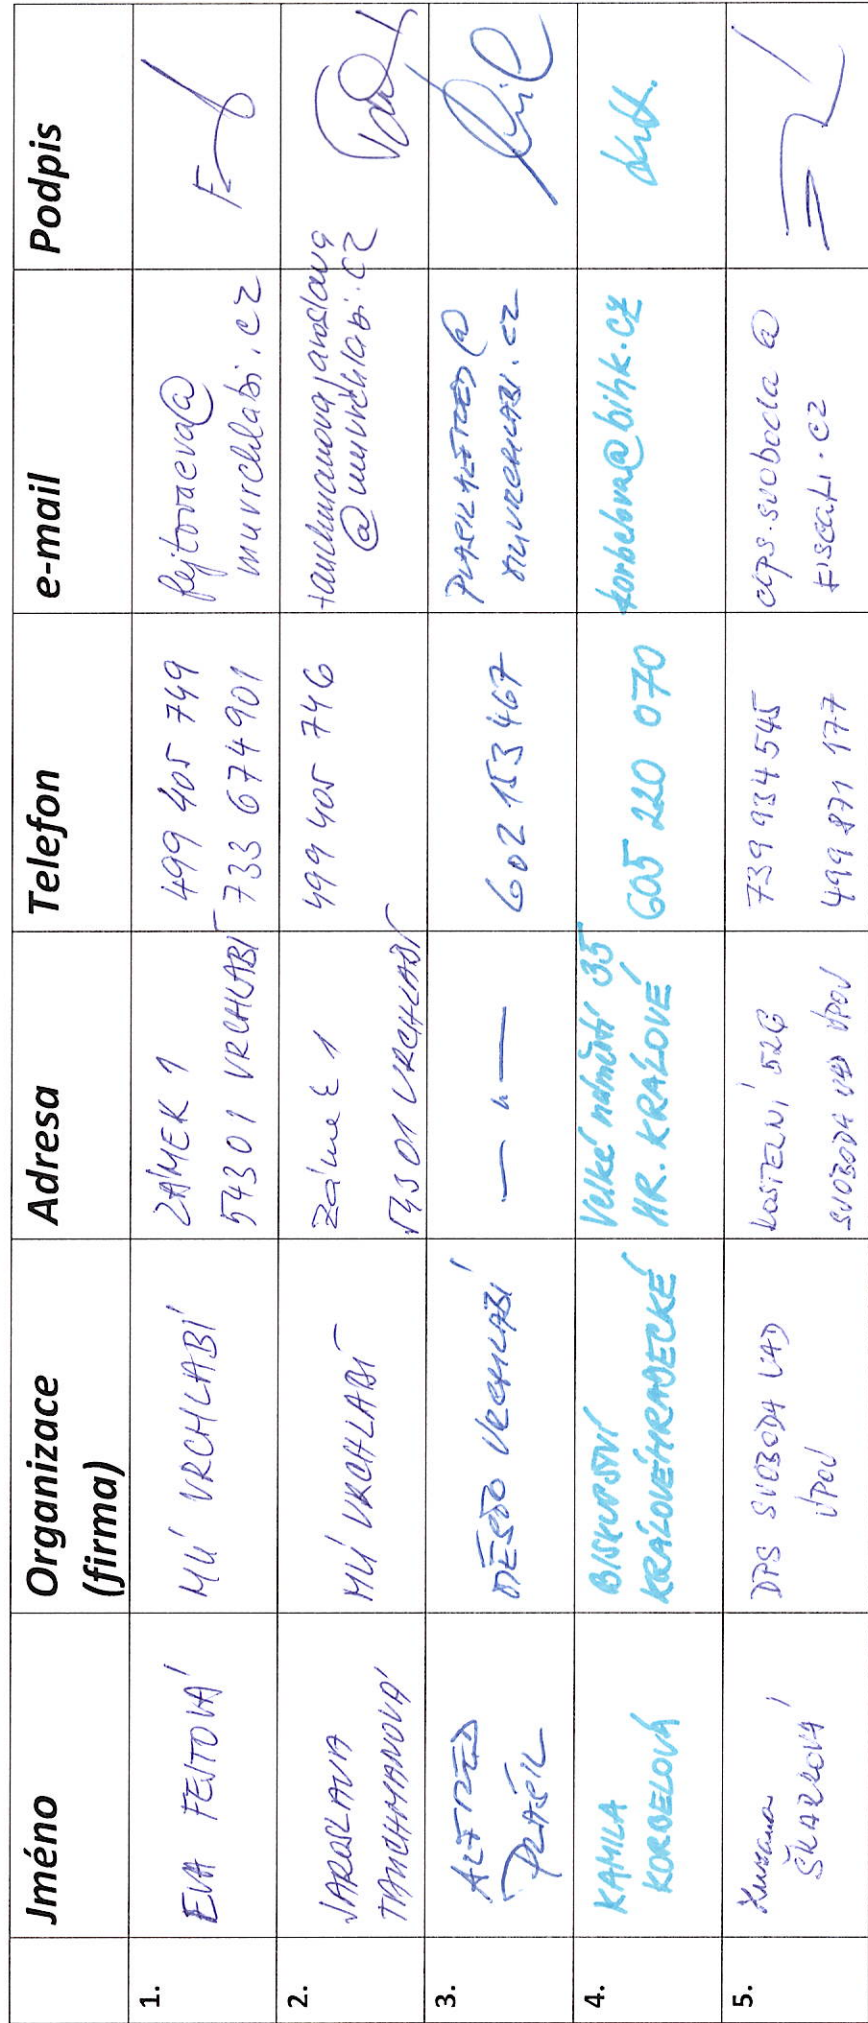 Jméno
Organizace
(firma)
Adresa
Telefon
e-mail
Podpis
1.
EVA FEJTOVÁ
MÚ VRCHLABÍ
ZÁMEK 1
543 01 VRCHLABÍ
499 405 749
733 674 901
fejtovaeva@
muvrchlabi.cz
2.
JAROSLAVA
TAUCHMANOVÁ
MÚ VRCHLABÍ
Zámek 1
543 01 VRCHLABÍ
499 405 746
tauchmanovajaroslava
@muvrchlabi.cz
3.
ALFRED
PLAŠIL
MĚSTO VRCHLABÍ
— " —
602 153 467
PLASILALFRED@
MUVRCHLABI.CZ
4.
KAMILA
KORBELOVÁ
BISKUPSTVÍ
KRÁLOVÉHRADECKÉ
Velké náměstí 35
HR. KRÁLOVÉ
605 220 070
korbelova@bihk.cz
5.
Zuzana
DPS SVOBODA NAD
ÚPOU
KOSTELNÍ 526
SVOBODA NAD ÚPOU
739 934 545
499 871 177
dps.svoboda@